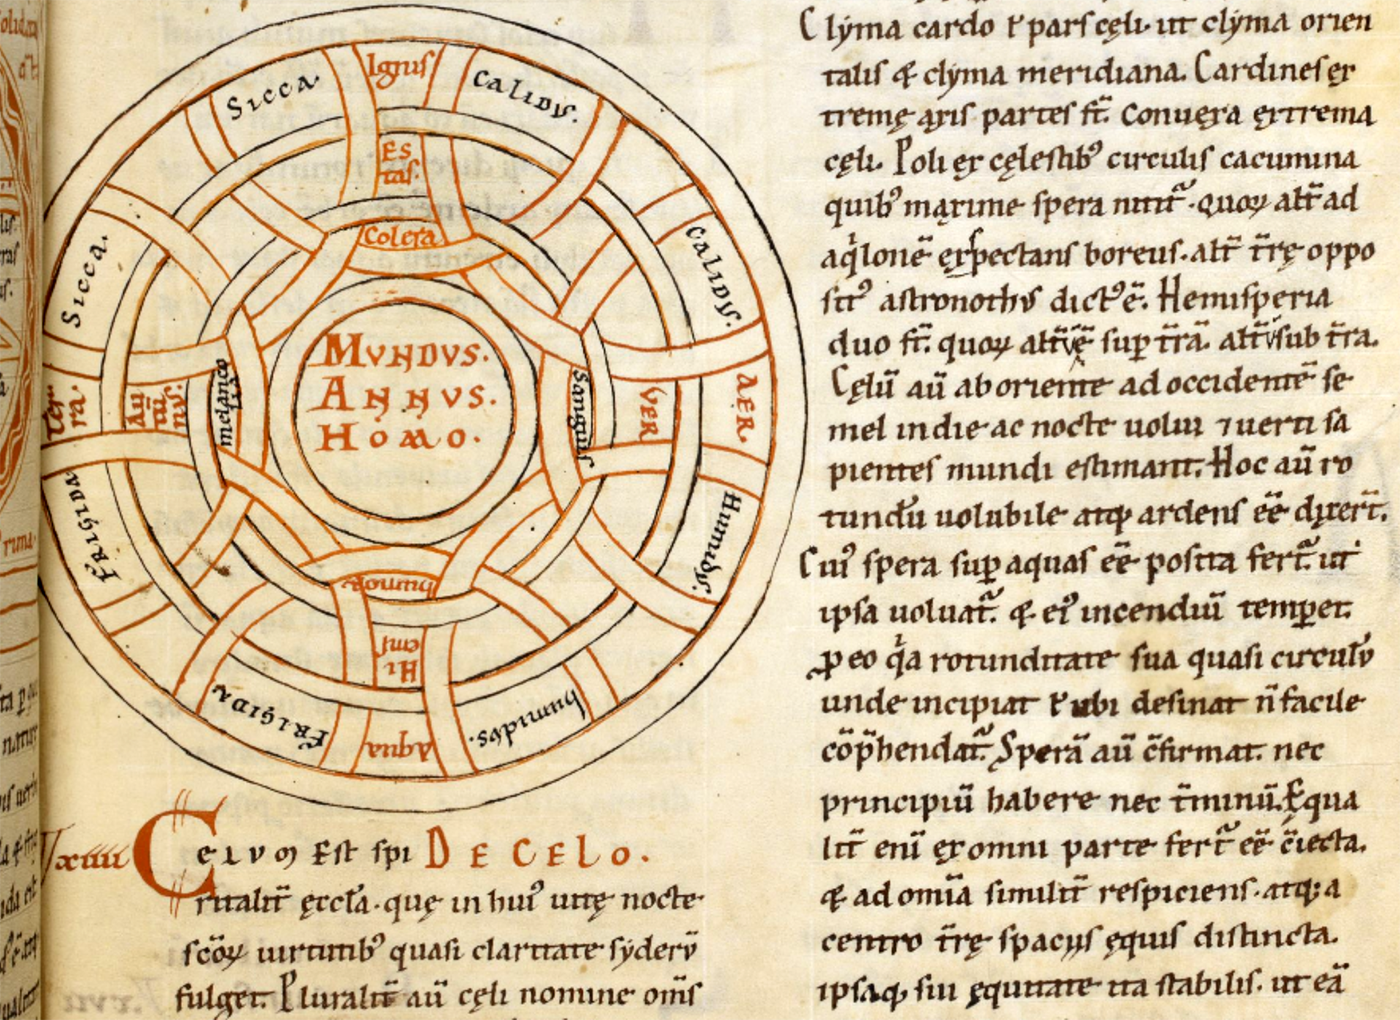 Sicca.
Ignis
Calidus.
Es
tas.
Colera
Sicca.
Calidus.
MUNDUS.
ANNUS.
HOMO.
ter
ra.
Au
tū
nus.
melanco
Sanguis
VER
AER.
FRIGIDA
Humidus.
Hi
ems
FRIGIDA
Aqua
humidus.
Celum Est spi DE CELO.
ritalit̄ ęccła. quę in huiꝰ uitę nocte
scōꝝ uirtutibꝰ quasi claritate sẏderū
fulget. Pluralit̄ aū cęli nomine om̄s
Clẏma cardo ł pars cęli. ut clẏma orien
talis & clẏma meridiana. Cardines ex
tremę axis partes st̄. Conuexa extrema
cęli. Poli ex cęlestibꝰ circulis cacumina
quibꝰ maxime spera nitit᷑. quoꝝ alt̄ ad
aq̓lonē expectans boreus. alt̄ t̄rę oppo
sitꝰ astronothus dictꝰ ē. Hemisperia
duo st̄. quoꝝ alt̄ū ē sup̄ t̄rā. alt̄ū sub t̄ra.
Cęlū aū ab oriente ad occidentē se
mel in die ac nocte uolui ⁊ uerti sa
pientes mundi estimant. Hoc aū ro
tundū uolubile atꝙ ardens eē dixert̄.
Cuiꝰ spera sup̄ aquas eē posita fert᷑. ut
ipsa uoluat᷑. & eiꝰ incendiū temperet.
ꝓ eo q̓a rotunditate sua quasi circulus
unde incipiat ł ubi desinat n̄ facile
cōp̄hendat᷑. Sperā aū c̄firmat. nec
principiū habere nec t̄minū. Equa
lit̄ enī ex omni parte fert᷑ eē c̄iecta.
& ad omīa similit̄ respiciens. atqꝫ a
centro t̄rę spaciis ęquis distincta.
ipsaqꝫ sui ęquitate ita stabilis. ut eā